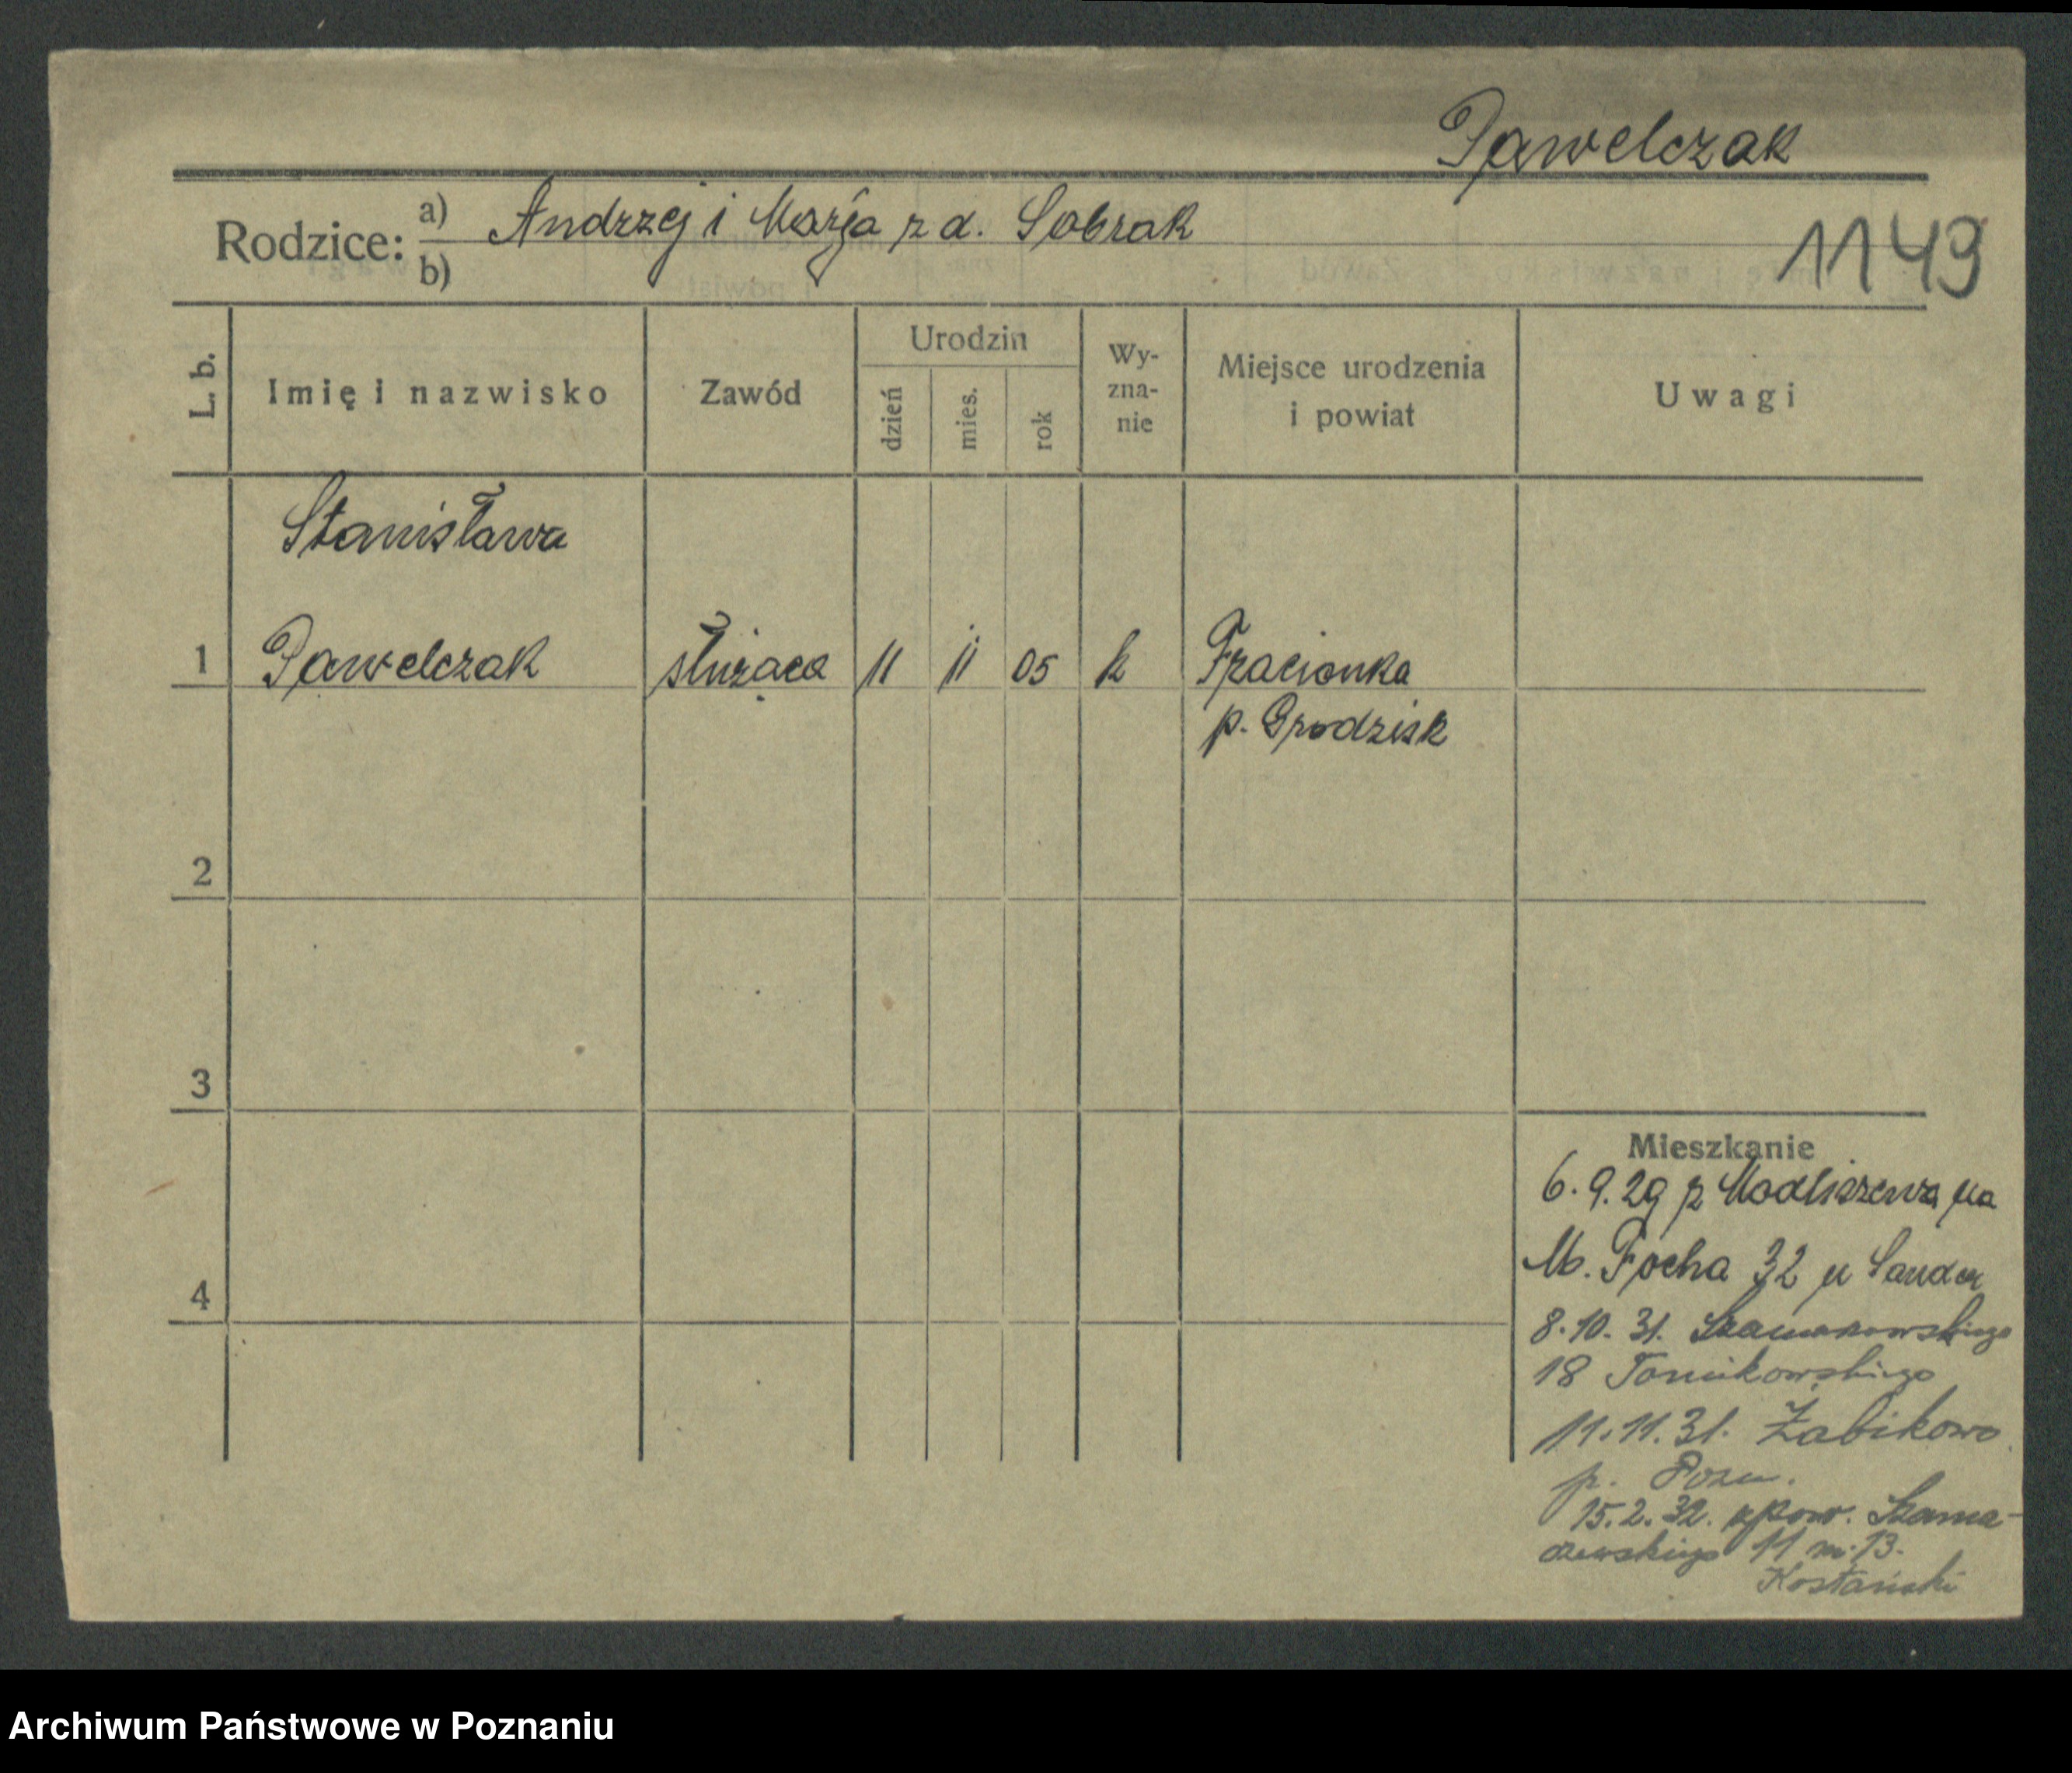 Pawelczak
Rodzice: a) Andrzej i Marja z d. Sobrak
b)
1149
L. b.
Imię i nazwisko
Zawód
Urodzin
dzień
mies.
rok
Wy-
zna-
nie
Miejsce urodzenia
i powiat
Uwagi
Stanisława
1 Pawelczak służąca 11 11 05 k Fracionka
p. Grodzisk
2
3
4
Mieszkanie
6.9.29 z Modliszewa na
M. Focha 32 u Sander
8.10.31.
18 Tomikowskiego
11.11.31. Żabikowo
p. Pozn.
15.2.32. zpow. Szama-
rzewskiego 11 m. 13.
Kostański
Archiwum Państwowe w Poznaniu